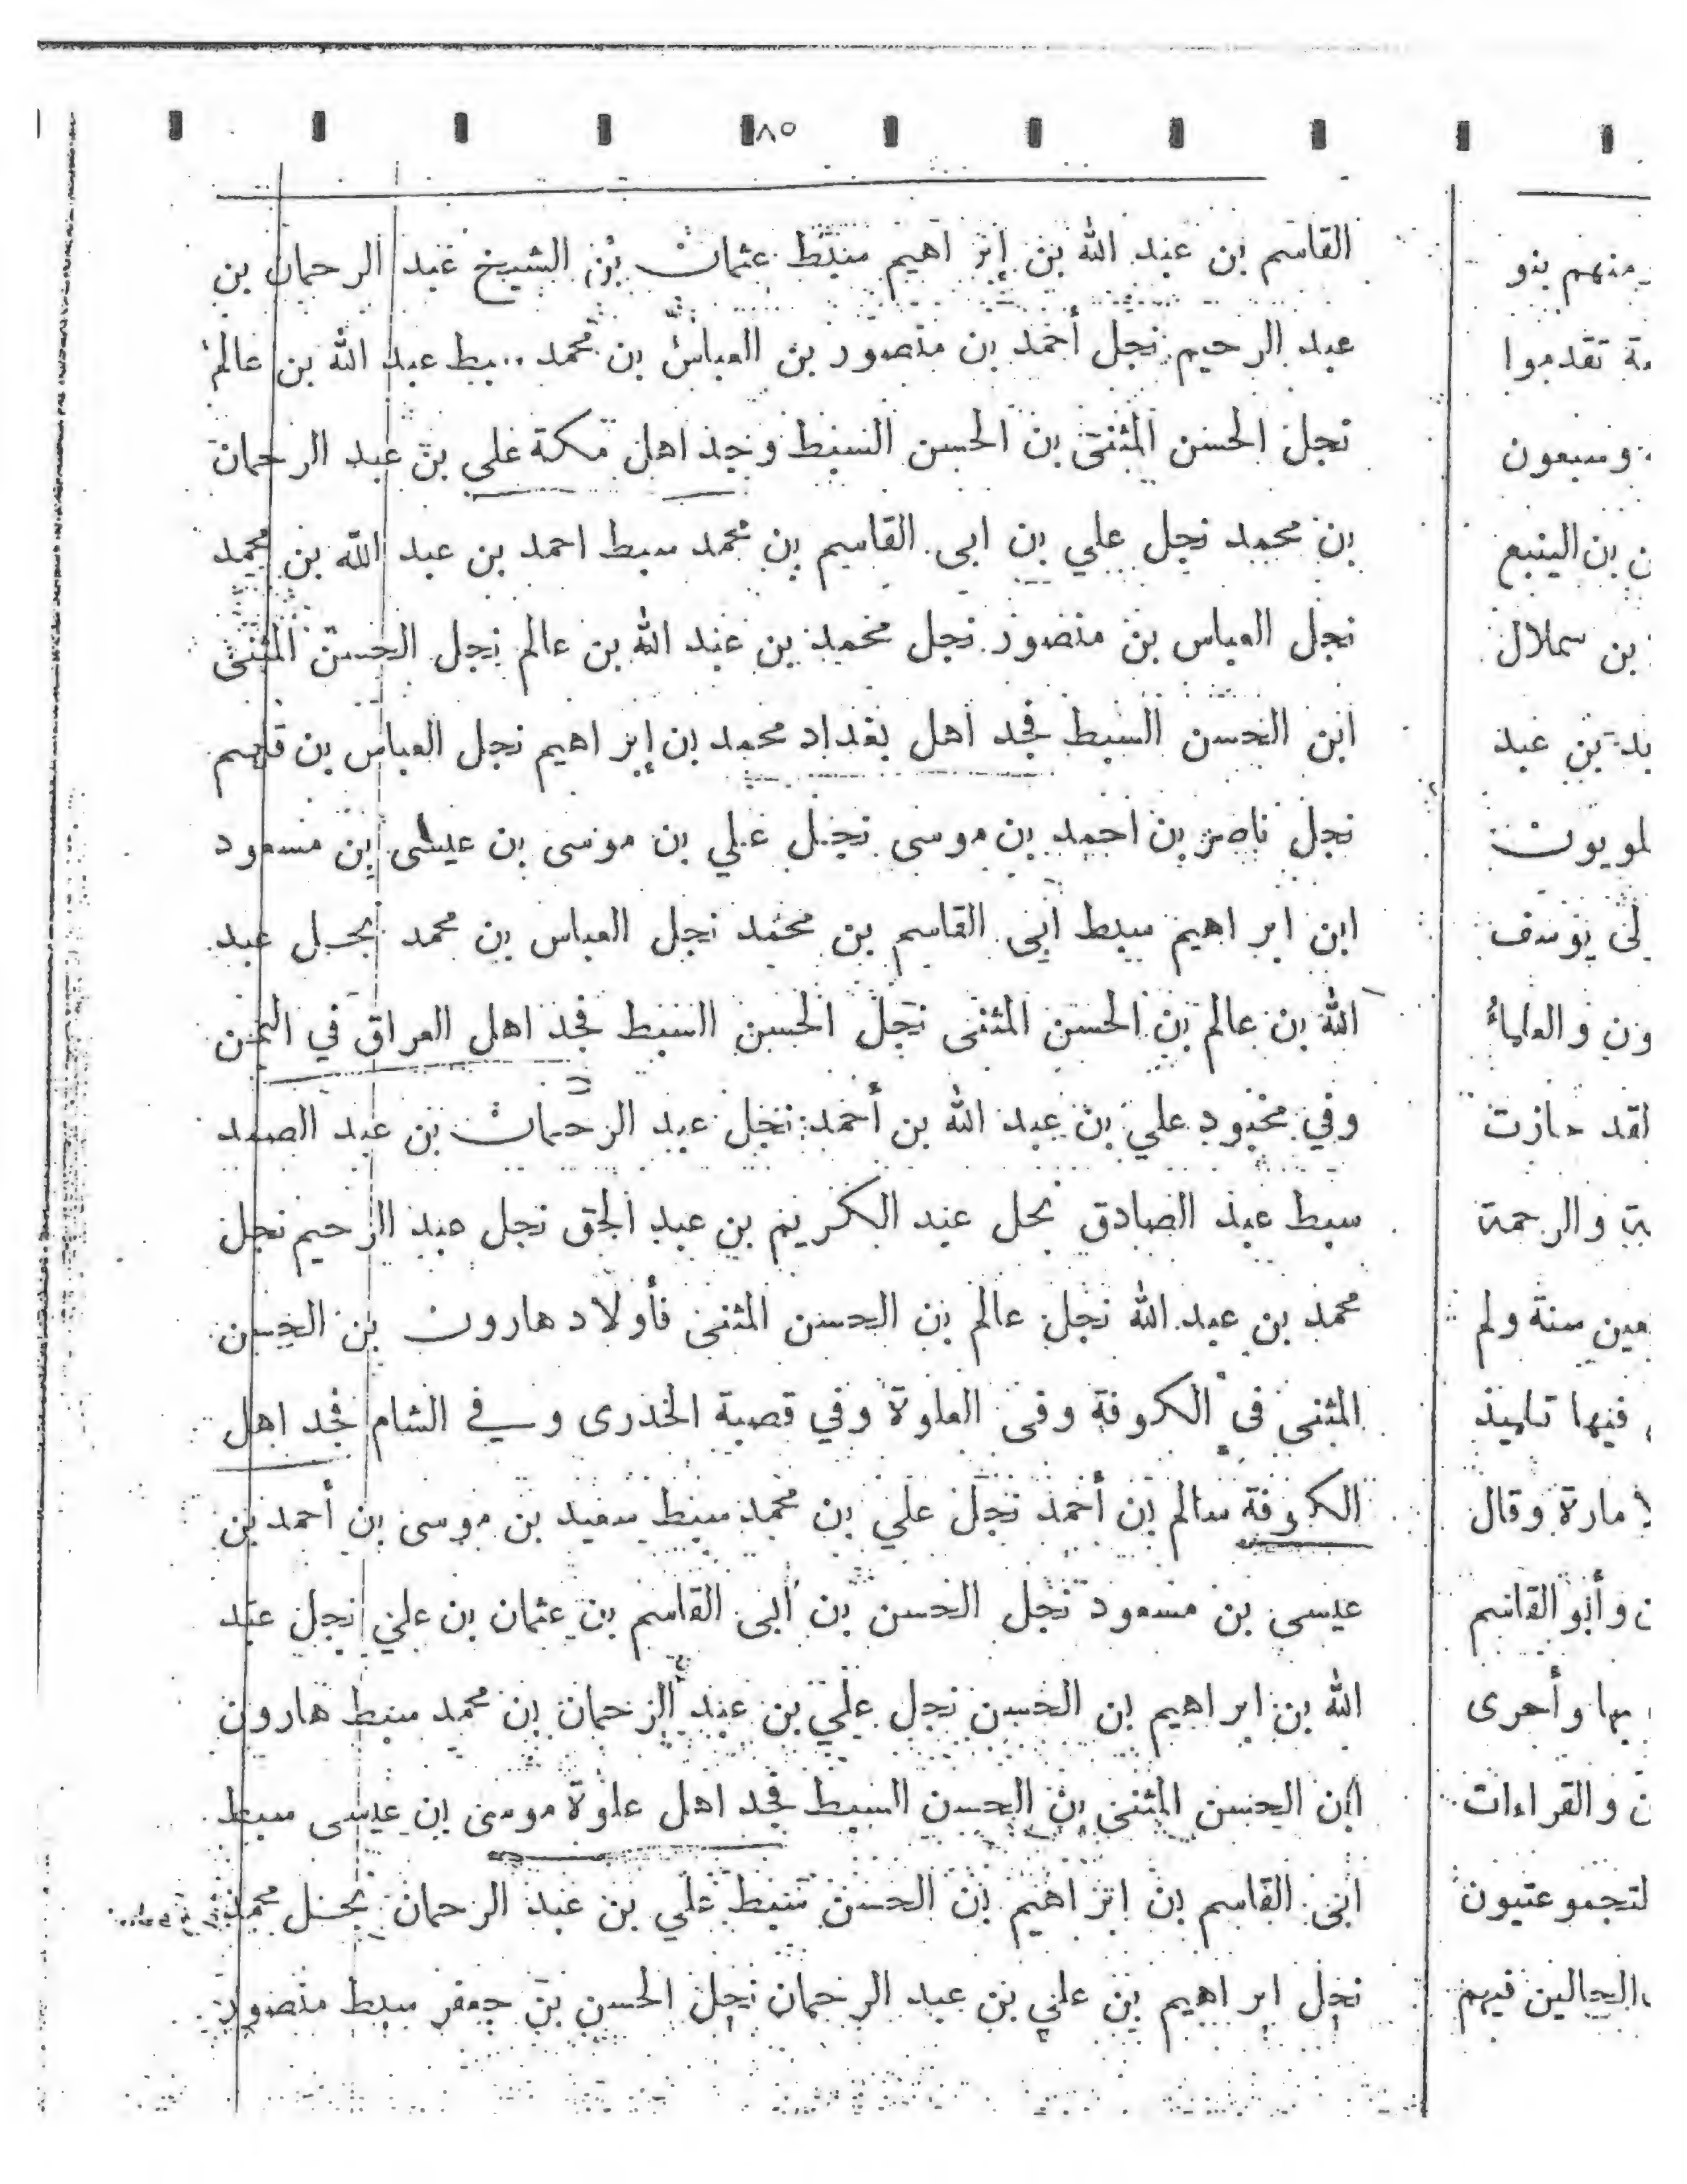 ٨٥
القاسم بن عبد الله بن إبراهيم سبط عثمان بن الشيخ عبد الرحمان بن
عبد الرحيم نجل أحمد بن منصور بن العباس بن محمد سبط عبد الله بن عالم
نجل الحسن المثنى بن الحسن السبط وجد اهل مكة علي بن عبد الرحمان
بن محمد نجل علي بن ابى القاسم بن محمد سبط احمد بن عبد الله بن محمد
نجل العباس بن منصور نجل محمد بن عبد الله بن عالم نجل الحسن المثنى
ابن الحسن السبط فجد اهل بغداد محمد بن إبراهيم نجل العباس بن قاسم
نجل ناصر بن احمد بن موسى نجل علي بن موسى بن عيسى بن مسعود
ابن ابراهيم سبط أبى القاسم بن محمد نجل العباس بن محمد نجل عبد
الله بن عالم بن الحسن المثنى نجل الحسن السبط فجد اهل العراق في اليمن
وفي علي بن عبد الله بن أحمد نجل عبد الرحمان بن عبد الصمد
سبط عبد الصادق نجل عبد الكريم بن عبد الحق نجل عبد الرحيم نجل
محمد بن عبد الله نجل عالم بن الحسن المثنى فأولاد هارون بن الحسن
المثنى في الكروفة وفى العلوة وفي قصبة الخدرى وفي الشام فجد اهل
الكروفة سالم بن أحمد نجل علي بن محمد سبط سعيد بن موسى بن أحمد بن
عيسى بن مسعود نجل الحسن بن أبى القاسم بن عثمان بن علي نجل عبد
الله بن ابراهيم بن الحسن نجل علي بن عبد الرحمان بن محمد سبط هارون
ابن الحسن المثنى بن الحسن السبط فجد اهل علوة موسى بن عيسى سبط
ابى القاسم بن ابراهيم بن الحسن سبط علي بن عبد الرحمان نجل محمد
نجل ابراهيم بن علي بن عبد الرحمان نجل الحسن بن جعفر سبط منصور
منهم بنو
تقدموا
وسبعون
بن الينبع
بن سملال
بن عبد
يوسف
والعلماءُ
لقد حازت
والرحمة
سنة ولم
فيها تلميذ
وقال
وأبو القاسم
بها وأحرى
والقراءات
فيهم